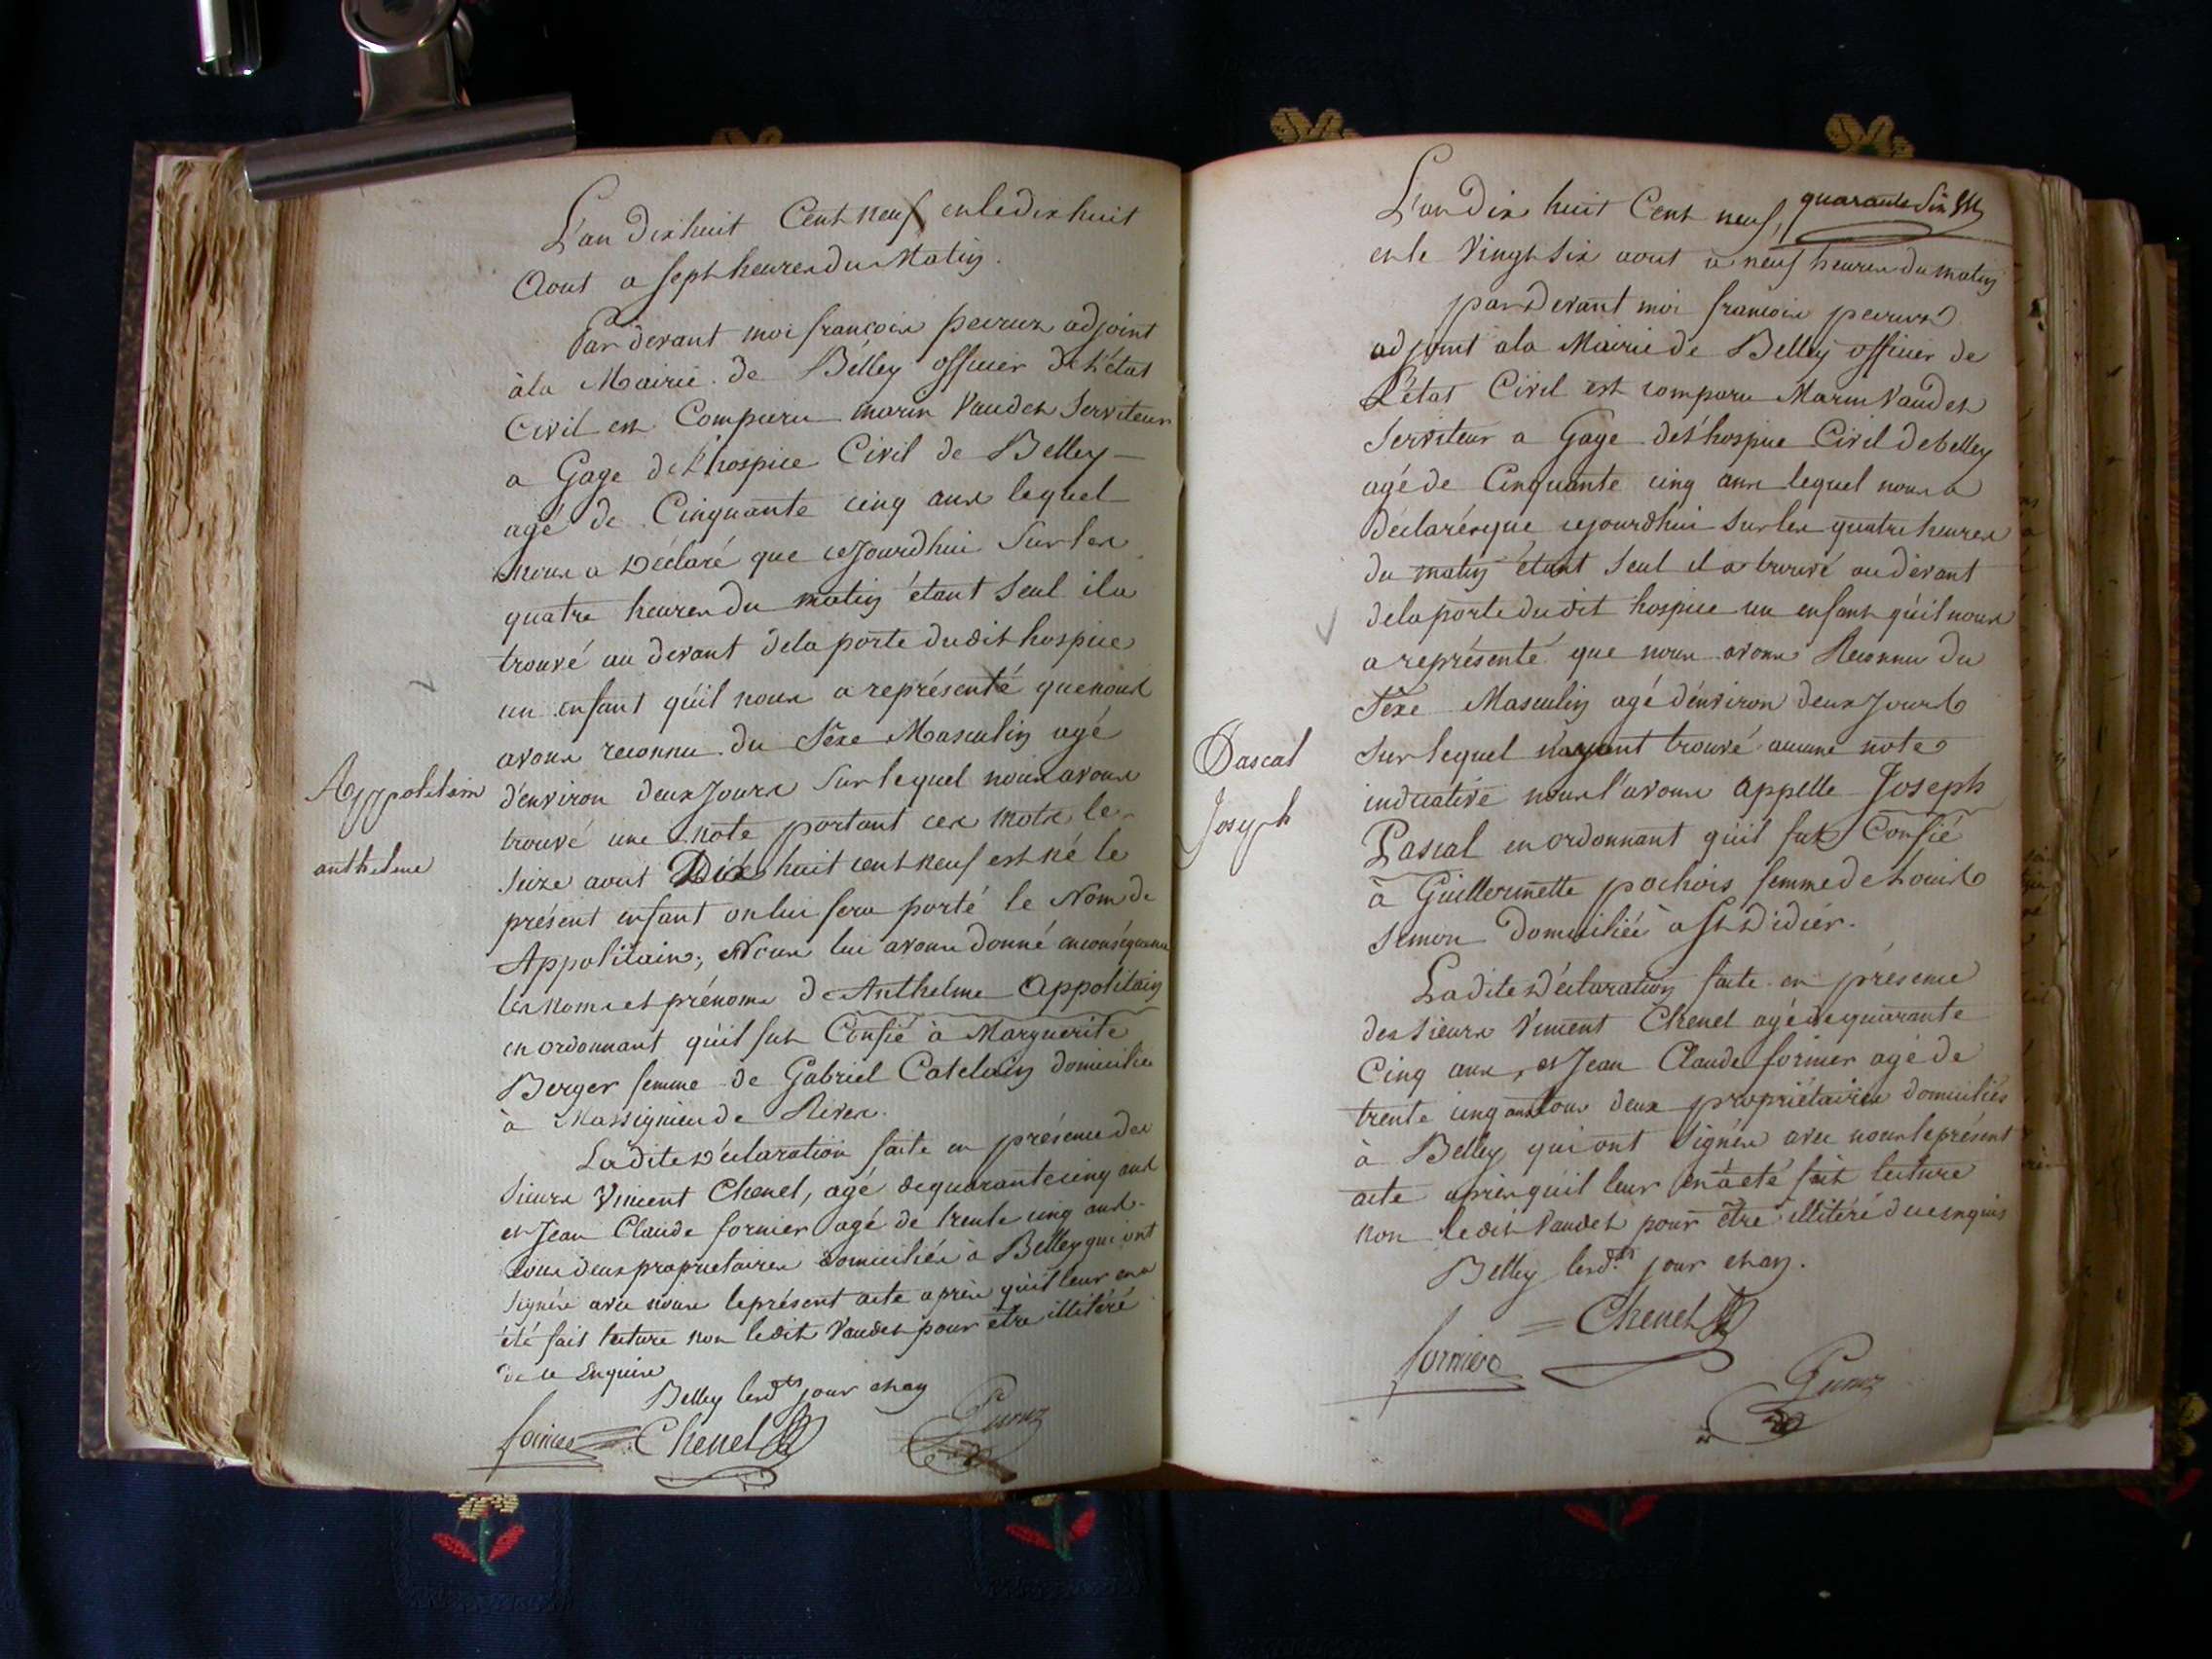 L'an Dix huit Cent neuf en le dix huit
Aout a sept heures du Matin.
Par devant moi françois peiruz adjoint
à la Mairie de Belley officier de l'état
Civil est Comparu marin Vaudet Serviteur
a Gage de l'hospice Civil de Belley
agé de Cinquante cinq ans lequel
nous a Déclaré que cejourdhui Sur les
quatre heures du matin étant Seul il a
trouvé au devant de la porte dudit hospice
un enfant qu'il nous a représenté que nous
avons reconnu du Sexe Masculin agé
d'environ deux Jours Sur lequel nous avons
trouvé une note portant ces mots le
Seize aout Dix huit cent neuf est né le
présent enfant on lui fera porté le Nom de
Appolitain; Nous lui avons donné en conséquence
les noms et prénoms de Anthelme Appolitain
en ordonnant qu'il fut Confié à Marguerite
Berger femme de Gabriel Catelain domiciliée
à Massignieu de Rives.
Ladite Déclaration faite en présence des
Sieurs Vincent Chenel, agé de quarante cinq ans
et Jean Claude fornier agé de trente cinq ans
tous deux proprietaires domiciliés à Belley qui ont
Signés avec nous le présent acte après qu'il leur en a
été fait lecture non ledit Vaudet pour être illitéré
de ce Enquis
Belley lesd.ts jour et an
fornier Chenel Peiruz
Appolitain
anthelme
quarante Six
L'an Dix huit Cent neuf,
en le Vingt Six aout a neuf heures du matin
par Devant moi francois peiruz
adjoint a la Mairie de Belley officier de
L'état Civil est comparu Marin Vaudet
Serviteur a Gage de l'hospice Civil de belley
agé de Cinquante cinq ans lequel nous a
Déclarés que cejourdhui Sur les quatre heures
du matin étant Seul il a trouvé au devant
de la porte dudit hospice un enfant qu'il nous
a représenté que nous avons Reconnu du
Sexe Masculin agé d'environ deux Jours
Sur lequel n'ayant trouvé aucune note
indicative nous l'avons appellé Joseph
Pascal en ordonnant qu'il fut Confié
à Guillermette pochois femme de Louis
Simon Domiciliée à St Didier.
Ladite Déclaration faite en présence
des Sieurs Vincent Chenel agé de quarante
Cinq ans, et Jean Claude fornier agé de
trente cinq ans tous deux propriétaires domiciliés
à Belley qui ont Signés avec nous le présent
acte après qu'il leur en a été fait lecture
non ledit Vaudet pour être illitéré de ce enquis
Belley lesd.ts jour et an.
Chenel
fornier
Peiruz
Pascal
Joseph